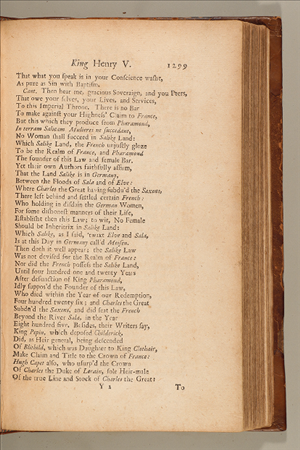 King Henry V. 1299
That what you speak is in your Conscience washt,
As pure as Sin with Baptism.
Cant. Then hear me, gracious Soveraign, and you Peers,
That owe your selves, your Lives, and Services,
To this Imperial Throne. There is no Bar
To make against your Highness' Claim to France,
But this which they produce from Pharamond,
In terram Salicam Mulieres ne succedant,
No Woman shall succeed in Salike Land:
Which Salike Land, the French unjustly gloze
To be the Realm of France, and Pharamond
The founder of this Law and female Bar.
Yet their own Authors faithfully affirm,
That the Land Salike is in Germany,
Between the Floods of Sala and of Elve:
Where Charles the Great having subdu'd the Saxons,
There left behind and settled certain French:
Who holding in disdain the German Women,
For some dishonest manners of their Life,
Establisht then this Law; to wit, No Female
Should be Inheritrix in Salike Land:
Which Salike, as I said, 'twixt Elve and Sala,
Is at this Day in Germany call'd Meisen.
Then doth it well appear, the Salike Law
Was not devised for the Realm of France:
Nor did the French possess the Salike Land,
Until four hundred one and twenty Years
After defunction of King Pharamond,
Idly suppos'd the Founder of this Law,
Who died within the Year of our Redemption,
Four hundred twenty six: and Charles the Great
Subdu'd the Saxons, and did seat the French
Beyond the River Sala, in the Year
Eight hundred five. Besides, their Writers say,
King Pepin, which deposed Childerick,
Did, as Heir general, being descended
Of Blithild, which was Daughter to King Clothair,
Make Claim and Title to the Crown of France:
Hugh Capet also, who usurp'd the Crown
Of Charles the Duke of Lorain, sole Heir-male
Of the true Line and Stock of Charles the Great:
Y 2 To